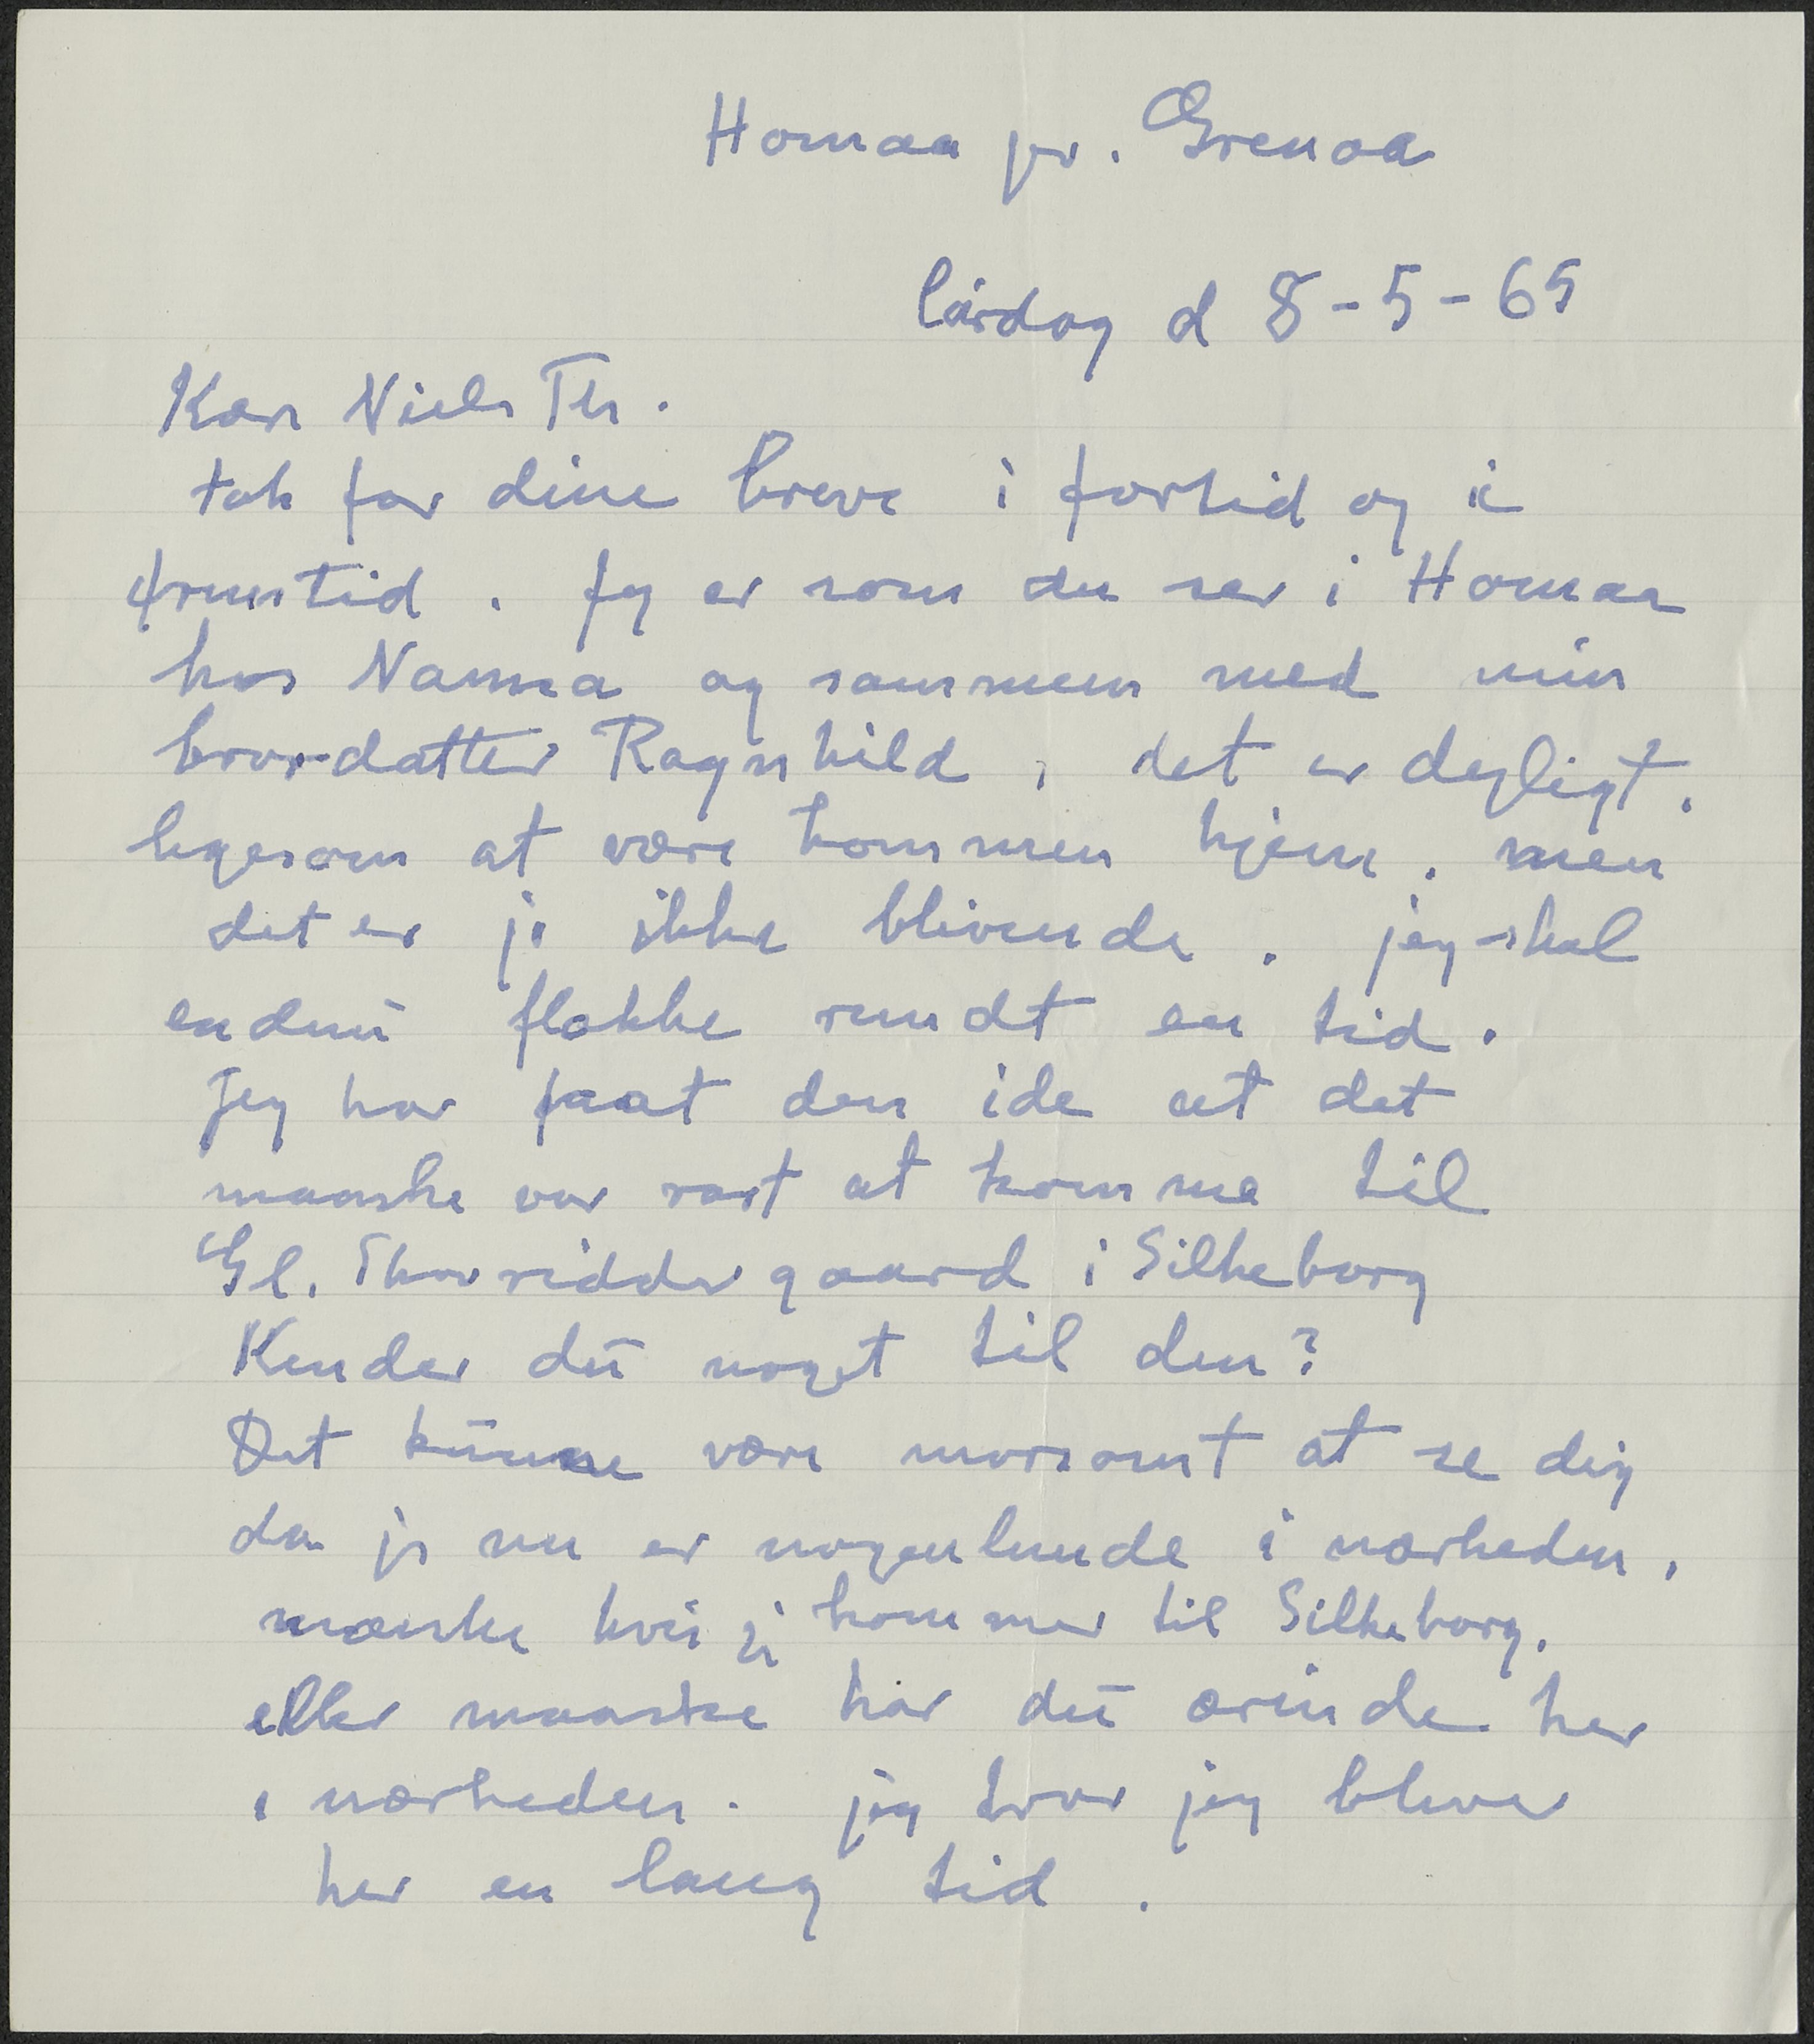 Homaa pr. Grenaa
lørdag d 8-5-65
Kære Niels Th.
tak for dine breve i fortid og i
fremtid. Jeg er som du ser i Homaa
hos Nanna og sammen med min
brordatter Ragnhild, det er dejligt.
ligesom at være kommen hjem. men
det er jo ikke blivende. jeg skal
endnu flakke rundt en tid.
Jeg har faaet den ide at det
maaske var rart at komme til
Gl. Skovriddergaard i Silkeborg
Kender du noget til den?
Det kunne være morsomt at se dig
da jeg nu er nogenlunde i nærheden.
maaske hvis jeg kommer til Silkeborg.
eller maaske har du ærinde her
i nærheden. jeg tror jeg bliver
her en lang tid.